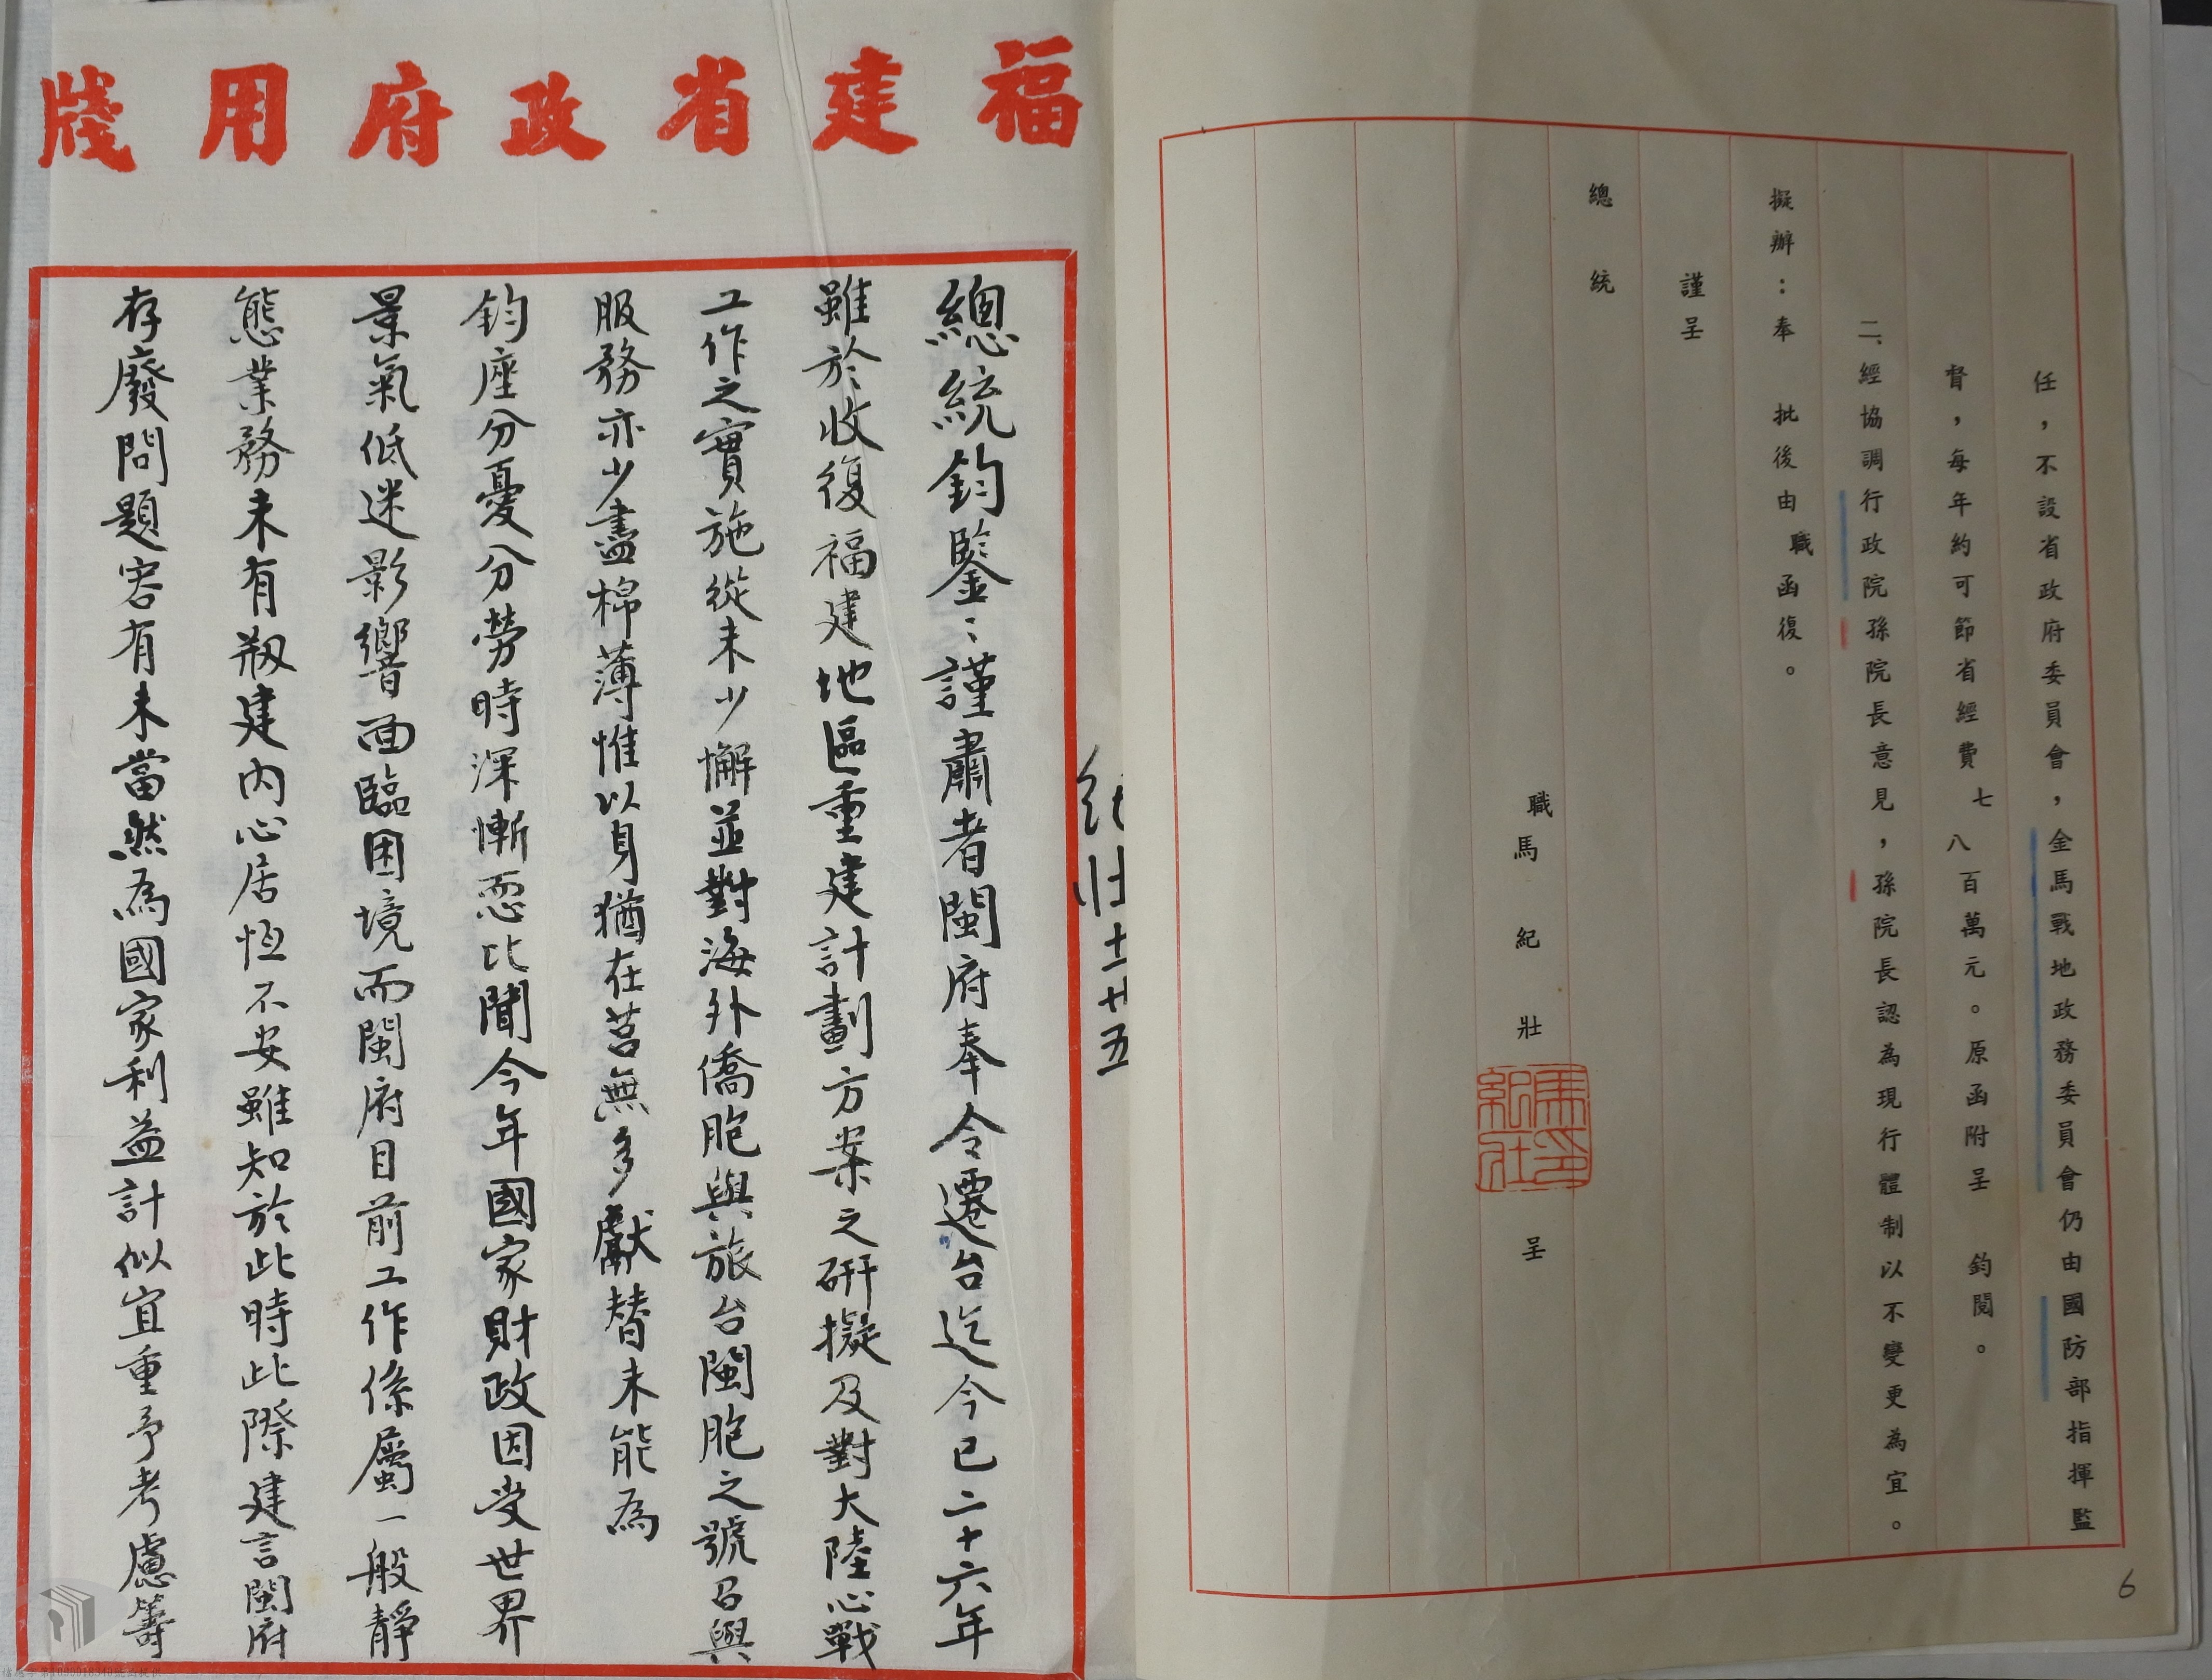 任，不設省政府委員會，金馬戰地政務委員會仍由國防部指揮監
督，每年約可節省經費七八百萬元。原函附呈　鈞閱。
二、經協調行政院孫院長意見，孫院長認為現行體制以不變更為宜。
擬辦：奉　批後由職函復。
謹呈
總統
職馬紀壯　呈
馬紀壯印
6
紀壯十一廿五
福建省政府用牋
總統鈞鑒：謹肅者閩府奉令遷台迄今已二十六年
雖於收復福建地區重建計劃方案之研擬及對大陸心戰
工作之實施從未少懈並對海外僑胞與旅台閩胞之號召與
服務亦少盡棉薄惟以身猶在莒無多獻替未能為
鈞座分憂分勞時深慚恧比聞今年國家財政因受世界
景氣低迷影響面臨困境而閩府目前工作係屬一般靜
態業務未有剏建內心居恒不安雖知於此時此際建言閩府
存廢問題容有未當然為國家利益計似宜重予考慮籌